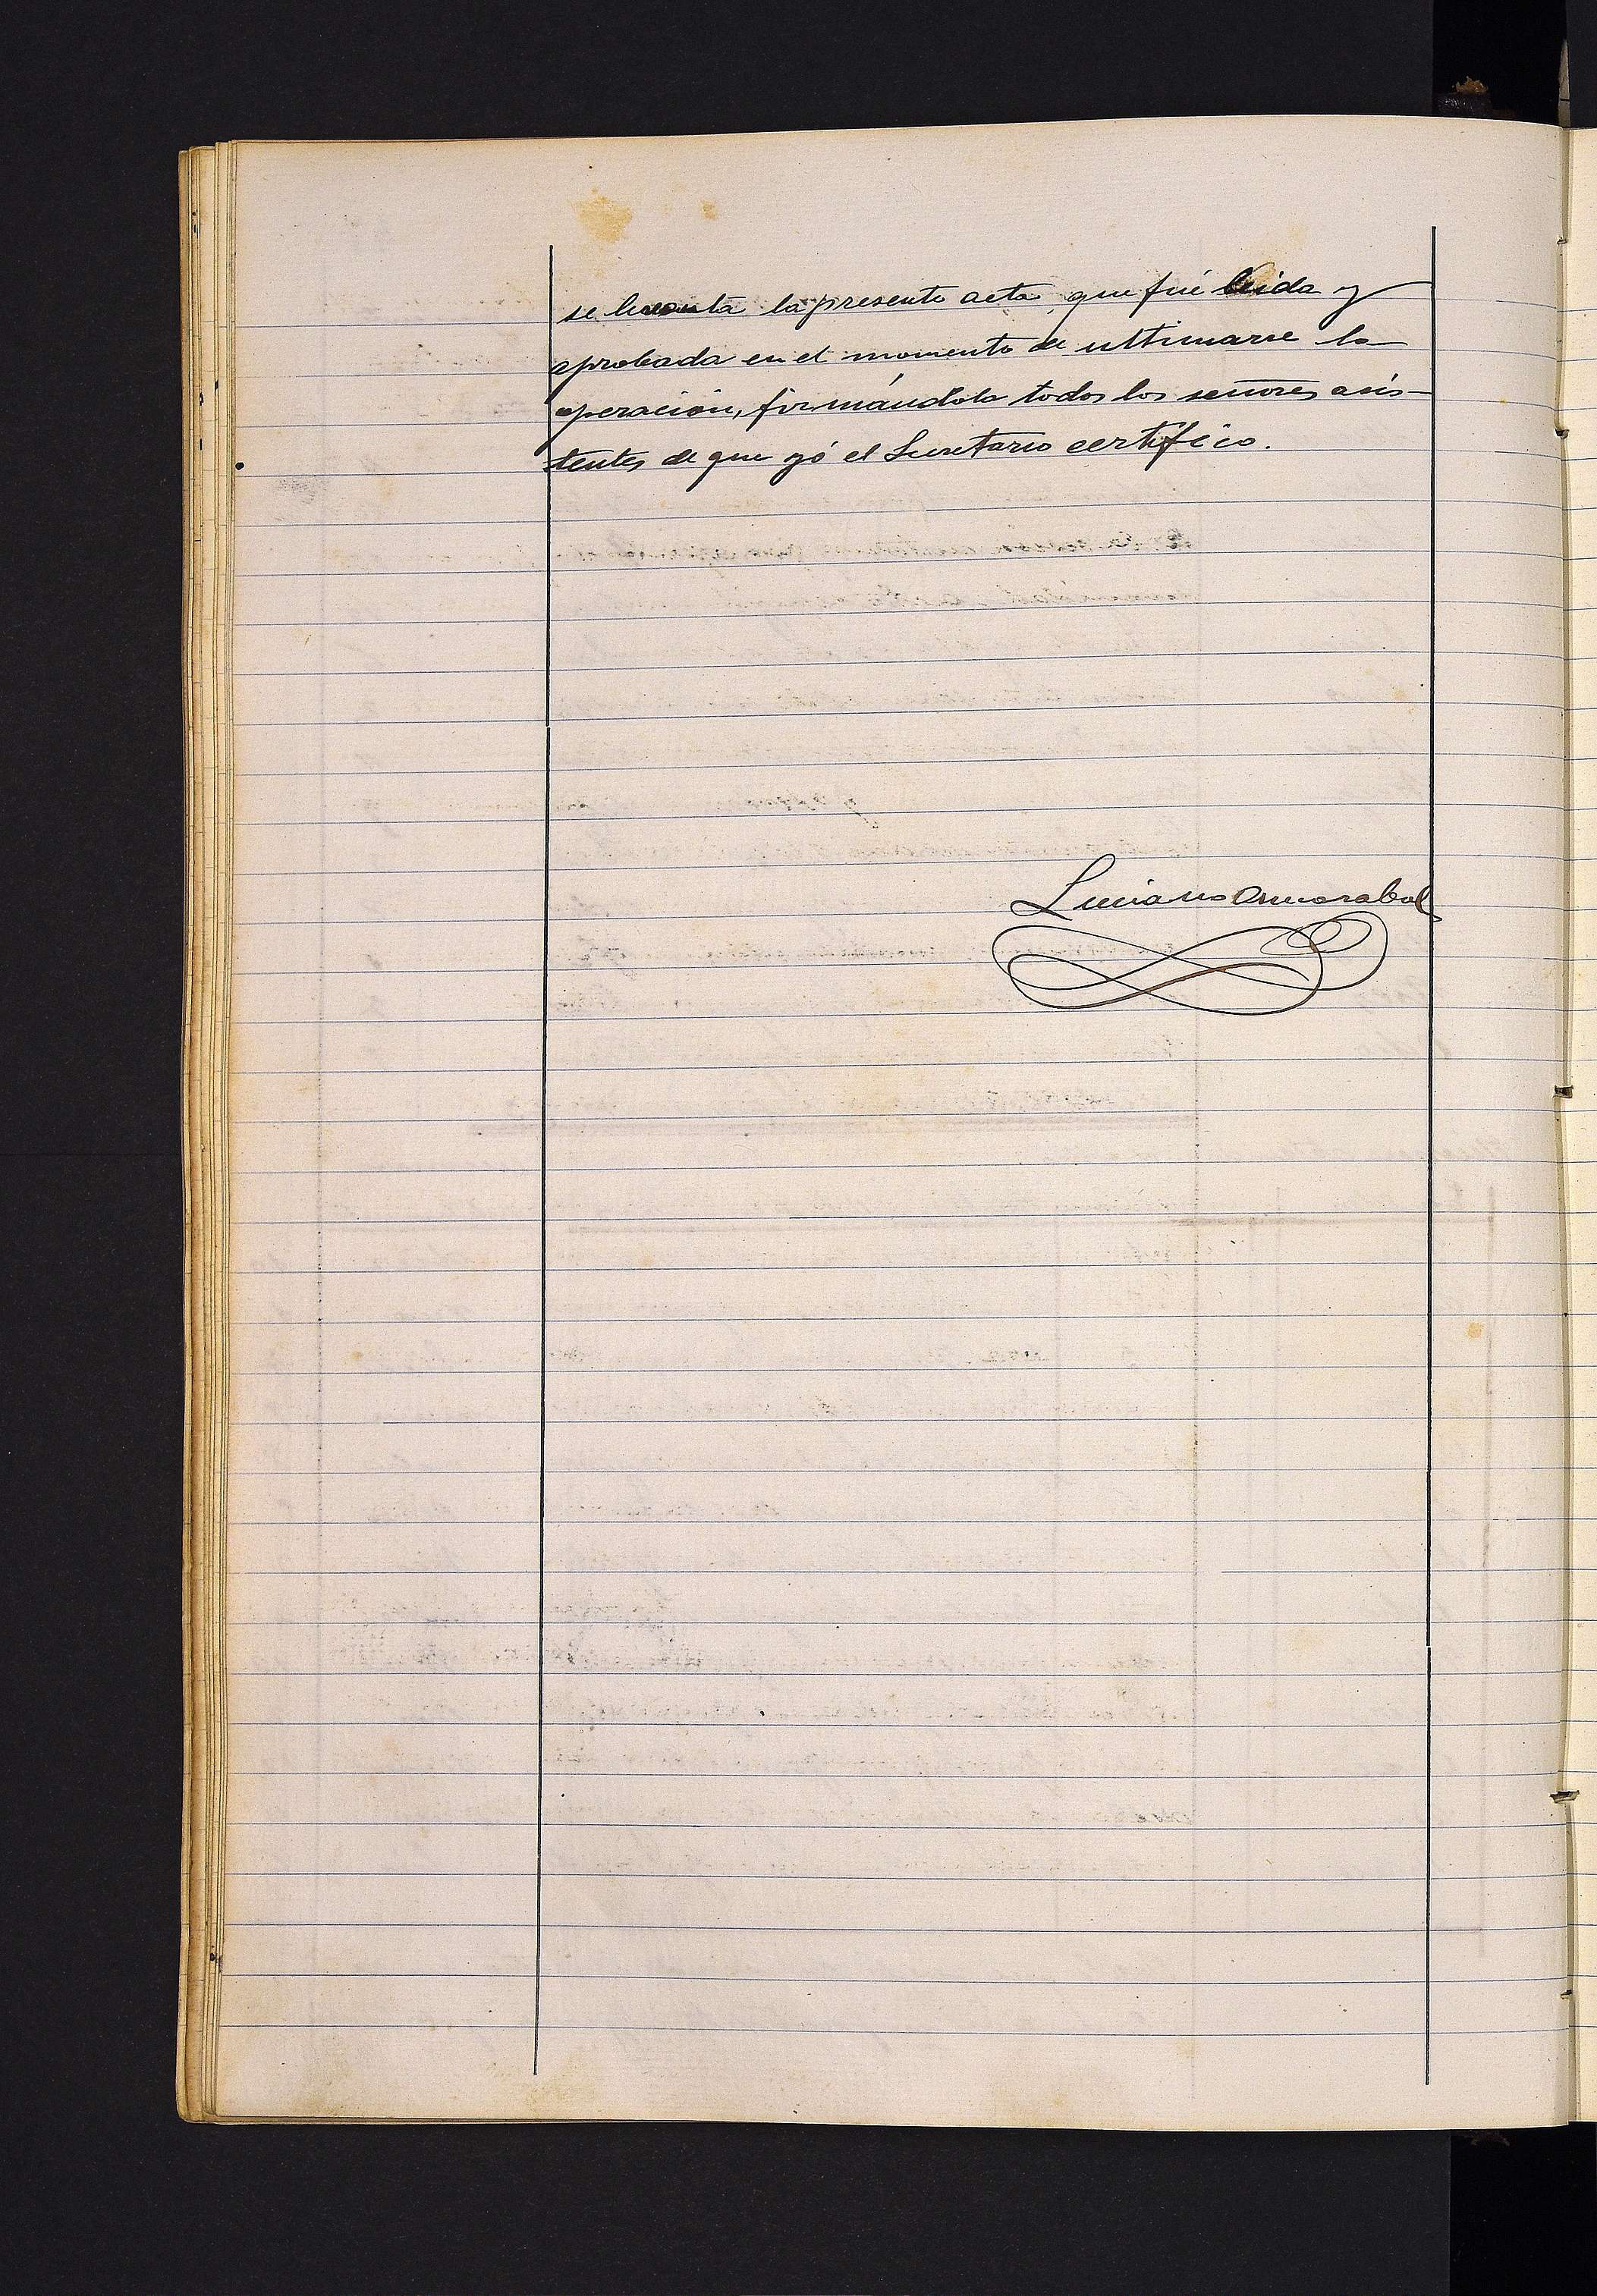 se levanta la presente acta, que fué leida y
aprobada en el momento de ultimarse la
operación, firmándola todos los señores asis-
tentes de que yó el Secretario certifico.
Luciano Amarabal